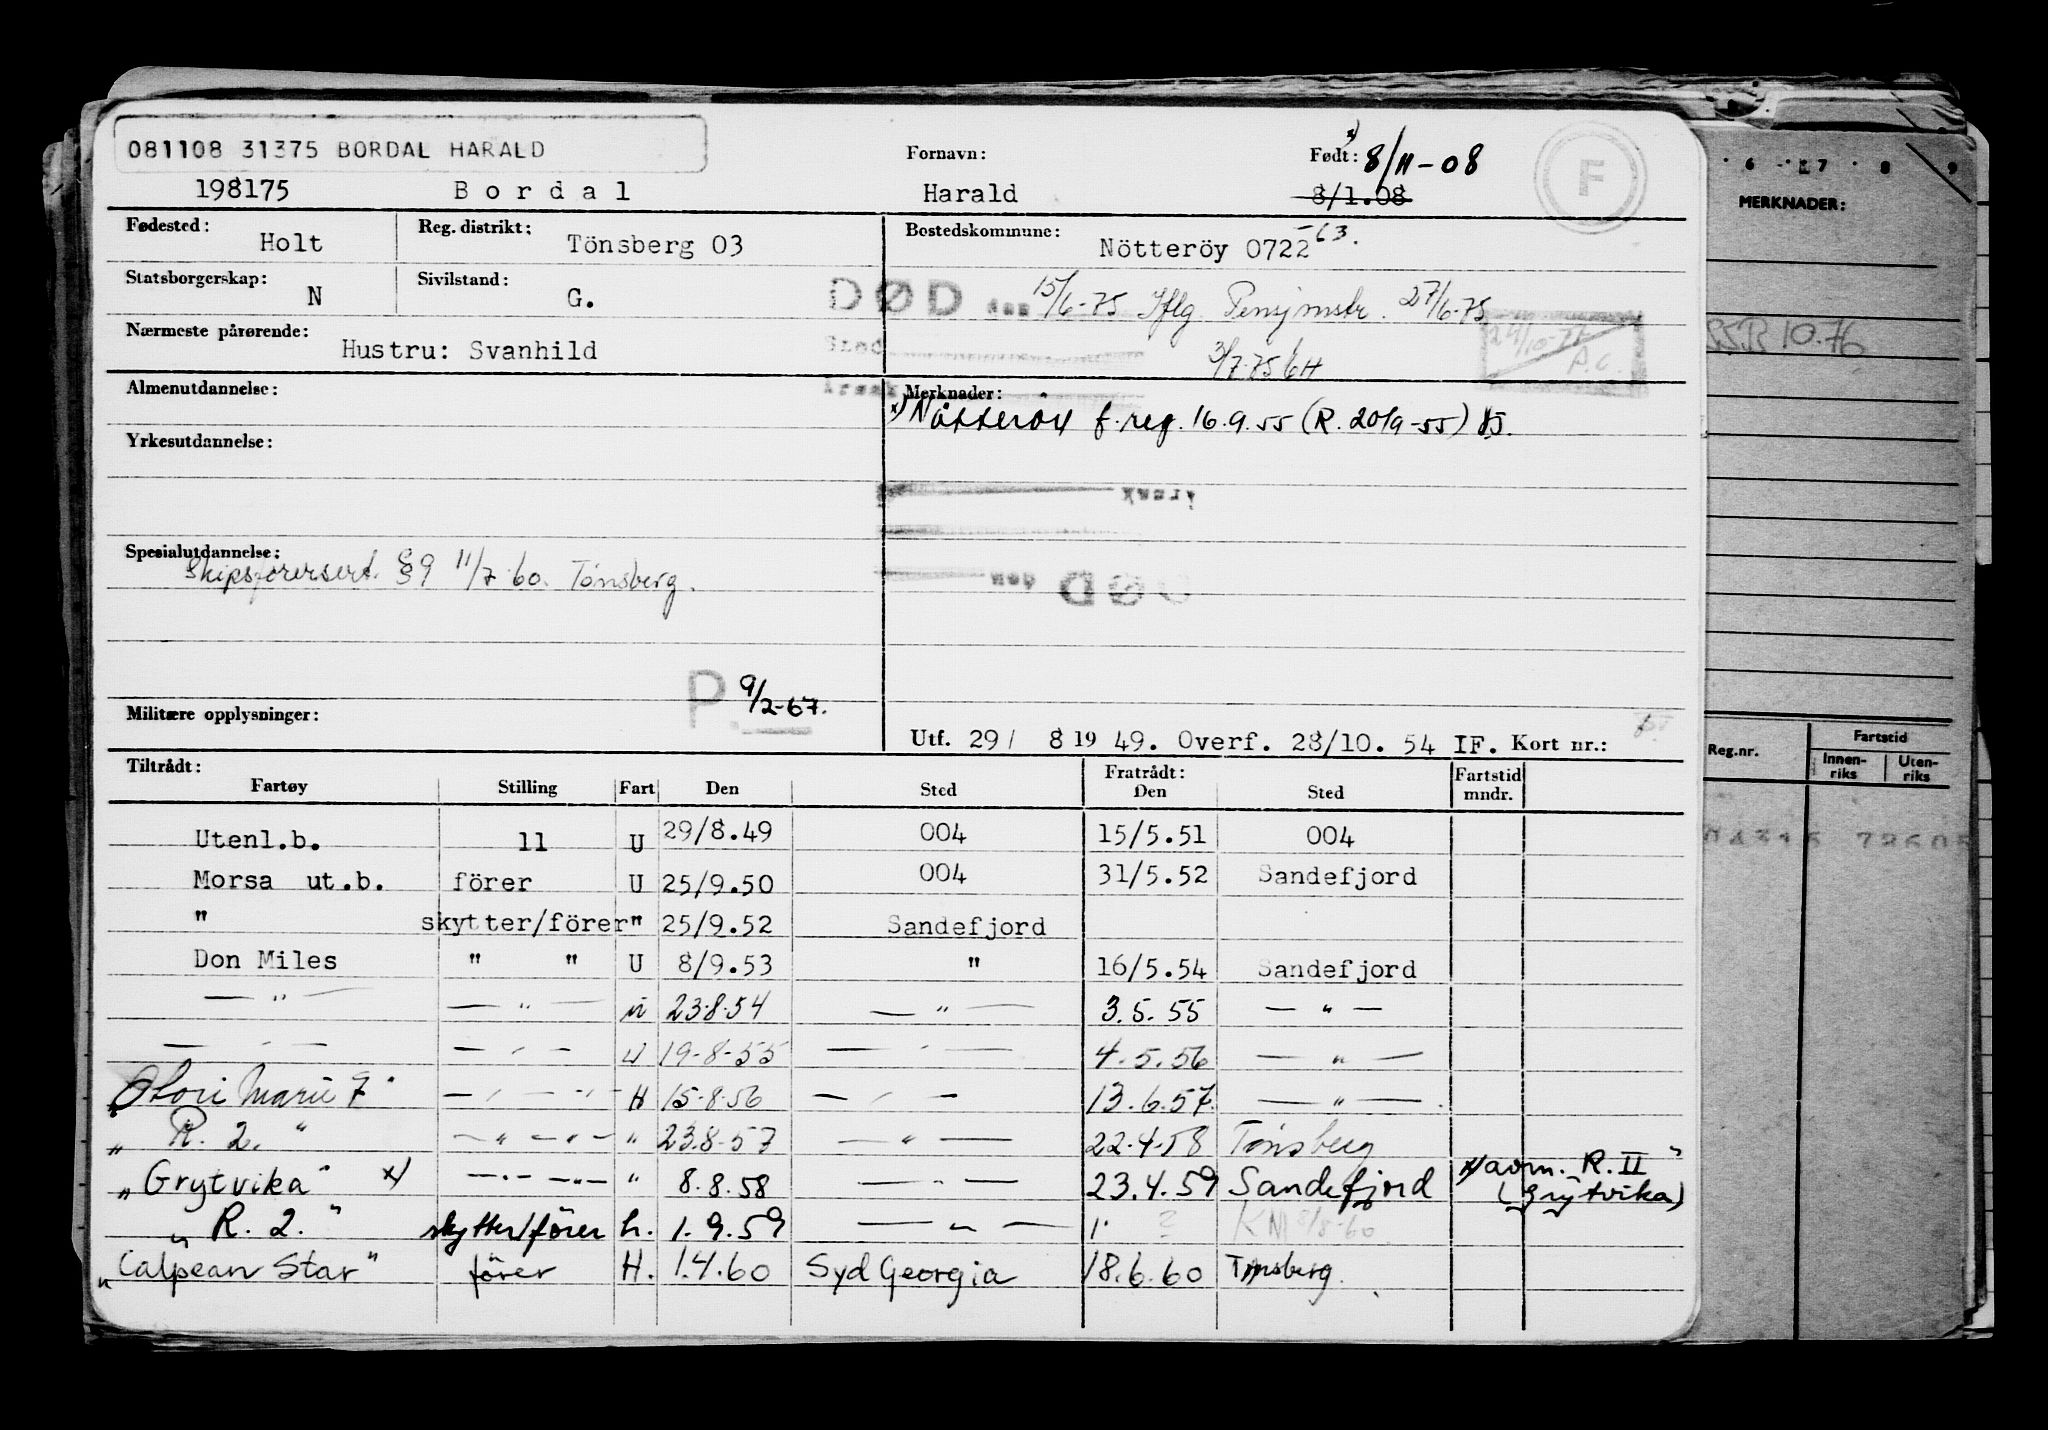 081108 31375 BORDAL HARALD
Fornavn: x) Født: 8/11-08
198175 Bordal Harald 8/1.08
F
Fødested: Holt Reg. distrikt: Tönsberg 03 Bostedskommune: Nötteröy 0722 -63.
Statsborgerskap: N Sivilstand: G. DØD den 15/6-75 Iflg. Pensjonstr. 27/6-75
Nærmeste pårørende: Hustru: Svanhild
3/7.75 GH
24/10-77
P.C.
Almenutdannelse: Merknader:
x) Nøtterøy f.reg. 16.9.55 (R. 20/9-55)
Yrkesutdannelse:
årsak
Spesialutdannelse:
Skipsførersert. §9 11/7 60. Tønsberg.
DØD den
P 9/2-67.
Militære opplysninger:
Utf. 29/ 8 19 49. Overf. 28/10. 54 IF. Kort nr.:
Tiltrådt: Fratrådt:
Fartøy Stilling Fart Den Sted Den Sted Fartstid mndr.
Utenl.b. 11 U 29/8.49 004 15/5.51 004
Morsa ut.b. förer U 25/9.50 004 31/5.52 Sandefjord
" skytter/förer " 25/9.52 Sandefjord
Don Miles " " U 8/9.53 " 16/5.54 Sandefjord
— " — — " — u 23.8.54 — " — 3.5.55 — " —
— " — — " — u 19-8-55 — " — 4.5.56 — " —
" Marie F" — " — " — H 15-8-56 — " — 13.6.57. — " —
" R. 2. " — " — " — " 23.8-57 — " — 22.4.58 Tønsberg
"Grytvika" x) — " — " — " 8.8.58 — " — 23.4.59 Sandefjord x) avm. R.II" (Grytvika)
" R. 2. " skytter/förer h. 1.9.59 — " — 1. ? KM 8/8-60
"Calpean Star" förer H. 1.4.60 Syd Georgia 18.6.60 Tønsberg.
6 7 8 9
MERKNADER:
RSR 10.76
Reg.nr. Fartstid
Innenriks Utenriks